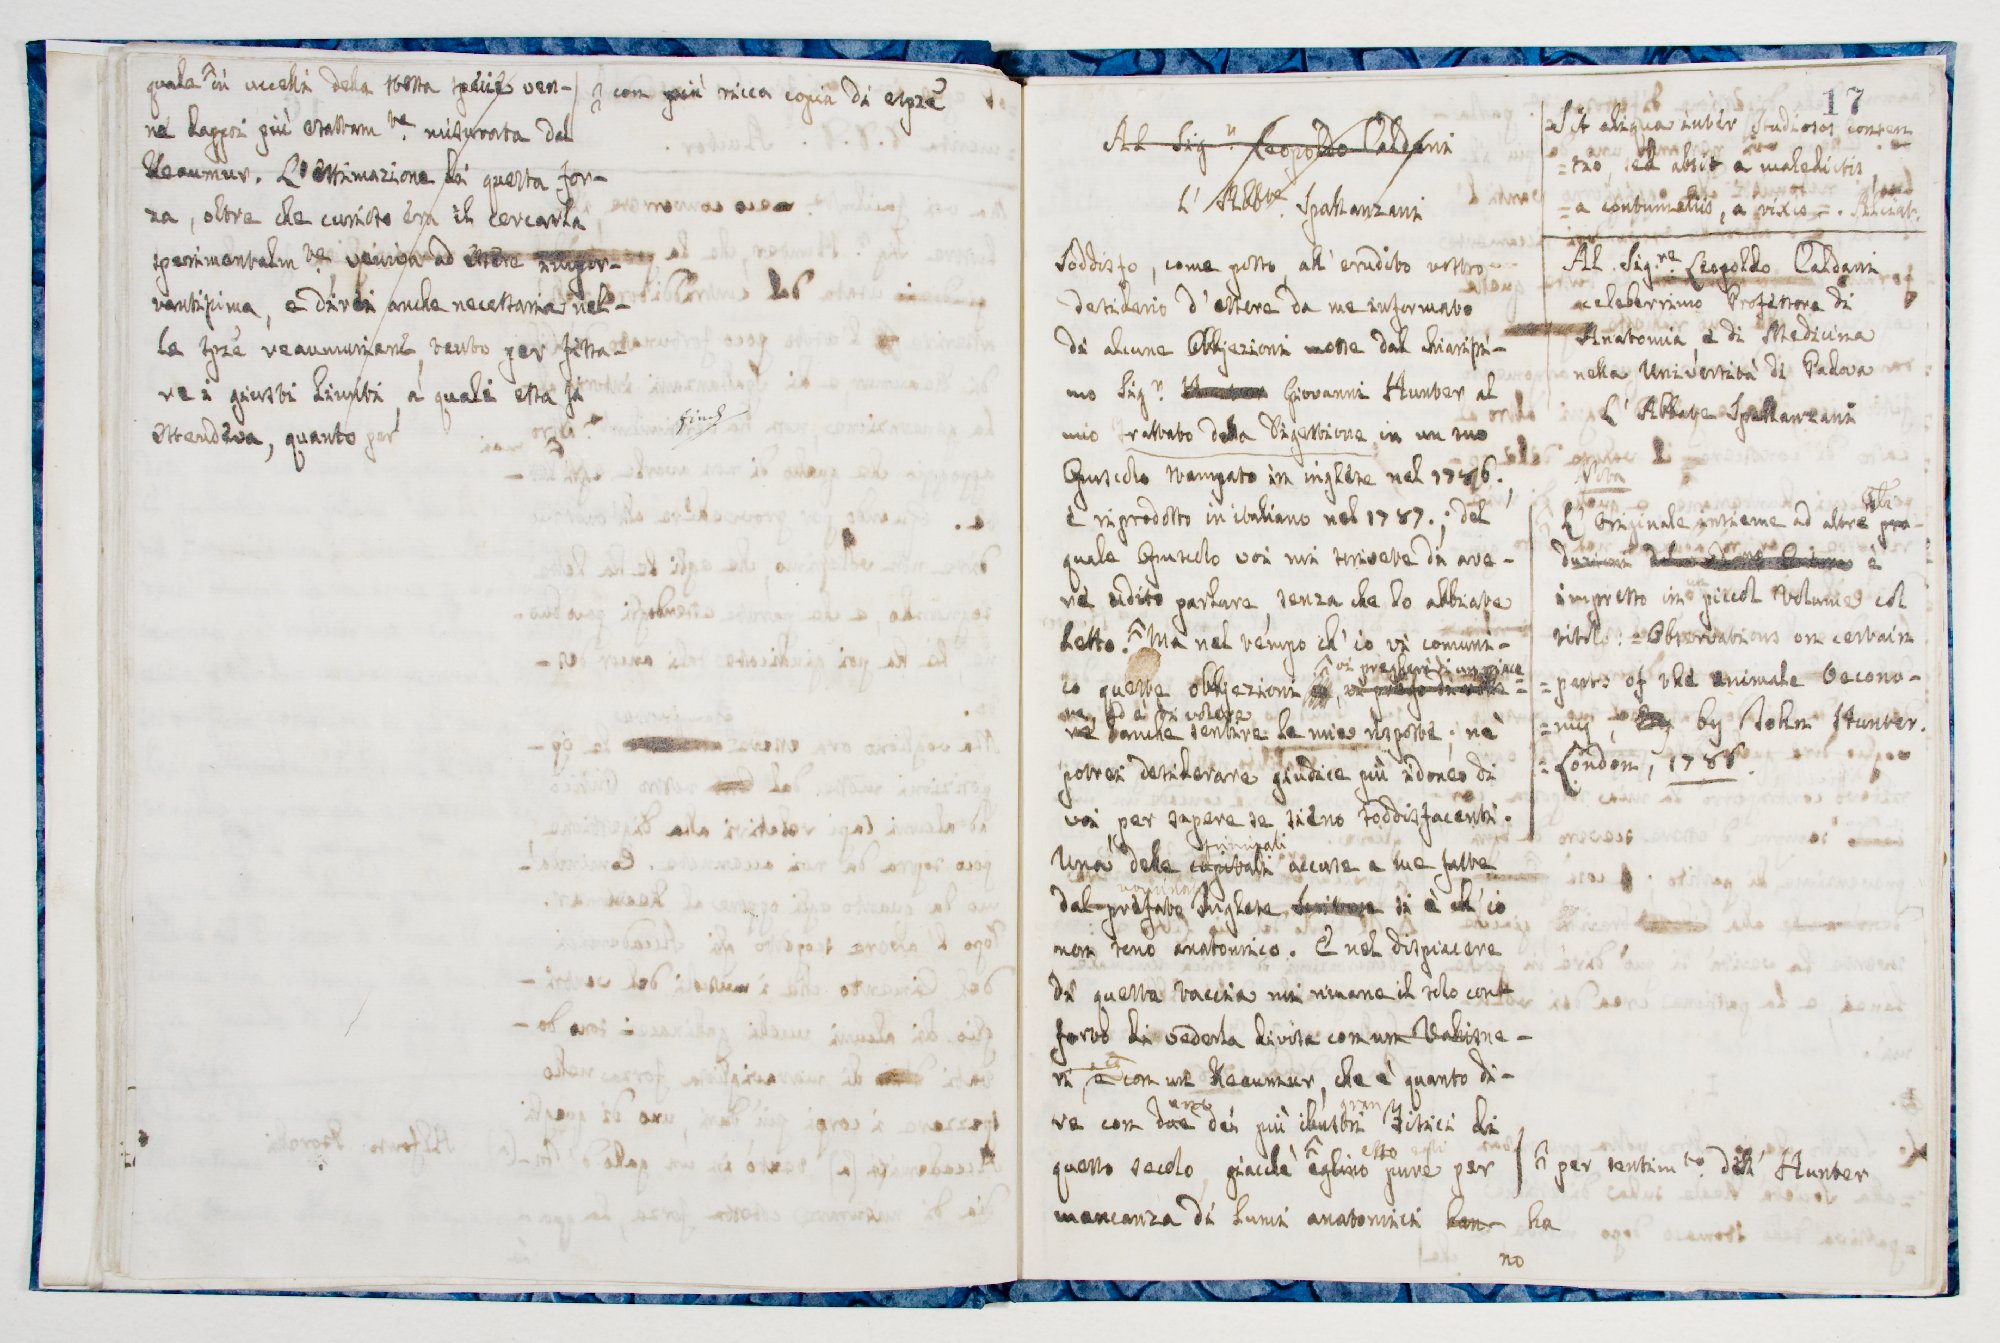 quale in uccelli della stessa spezie ven-
ne dappoi più esattam.te misurata dal
Reaumur. L'estimazione di questa for-
za, oltre che curioso era il cercarla
sperimentalm.te veniva ad essere
vantissima, e direi anche necessaria nel-
le spze reaumuriane, tanto per fissa-
re i giusti limiti, a quali essa si
stendeva, quanto per
con più ricca copia di espze
finch
17
Al Sig.r Leopoldo Caldani
L' Abbe. Spallanzani
Soddisfo, come posso, all'erudito vostro
desiderio d'essere da me informato
di alcune Obbjezioni mosse dal chiarissi-
mo Sig.r Giovanni Hunter al
mio Trattato della Digestione in un suo
Opuscolo stampato in inglese nel 1786.,
e riprodotto in italiano nel 1787.; del
quale Opuscolo voi mi scrivete di ave-
re udito parlare, senza che lo abbiate
letto. Ma nel tempo ch'io vi comuni-
co queste obbjezioni, vi pregherei di
re, ed a di volere
re anche sentire le mie risposte; nè
potrei desiderare giudice più idoneo di
voi, per sapere se sieno soddisfacenti.
principali
Una delle capitali accuse a me fatte
nominato
dal prefato Inglese si è ch'io
non sono anatomico. E nel dispiacere
di questa taccia mi rimane il solo conf
forto di vederla divisa con un Valisne-
ri e con un Reaumur, che è quanto di-
re con due dei più illustri Fisici di
gran
questo secolo, giacchè eglino pure per
esso egli
mancanza di lumi anatomici han- ha
no
=Sit aliqua inter studiosos conten
=tio, sed absit a maledictis
=a contumeliis, a rixis =. Alciat.
Al Sig.re Leopoldo Caldani
celeberrimo Professore di
Anatomia e di Medicina
nella Università di Padova
L'Abbate Spallanzani
Nota
L'Originale insieme ad altre pro-
duzioni è
impresso in un piccol Volume col
titolo: =Observations on certain
=parts of the animale Oecono-
=my, by John Hunter.
=London, 1786.
per sentim.to dell' Hunter